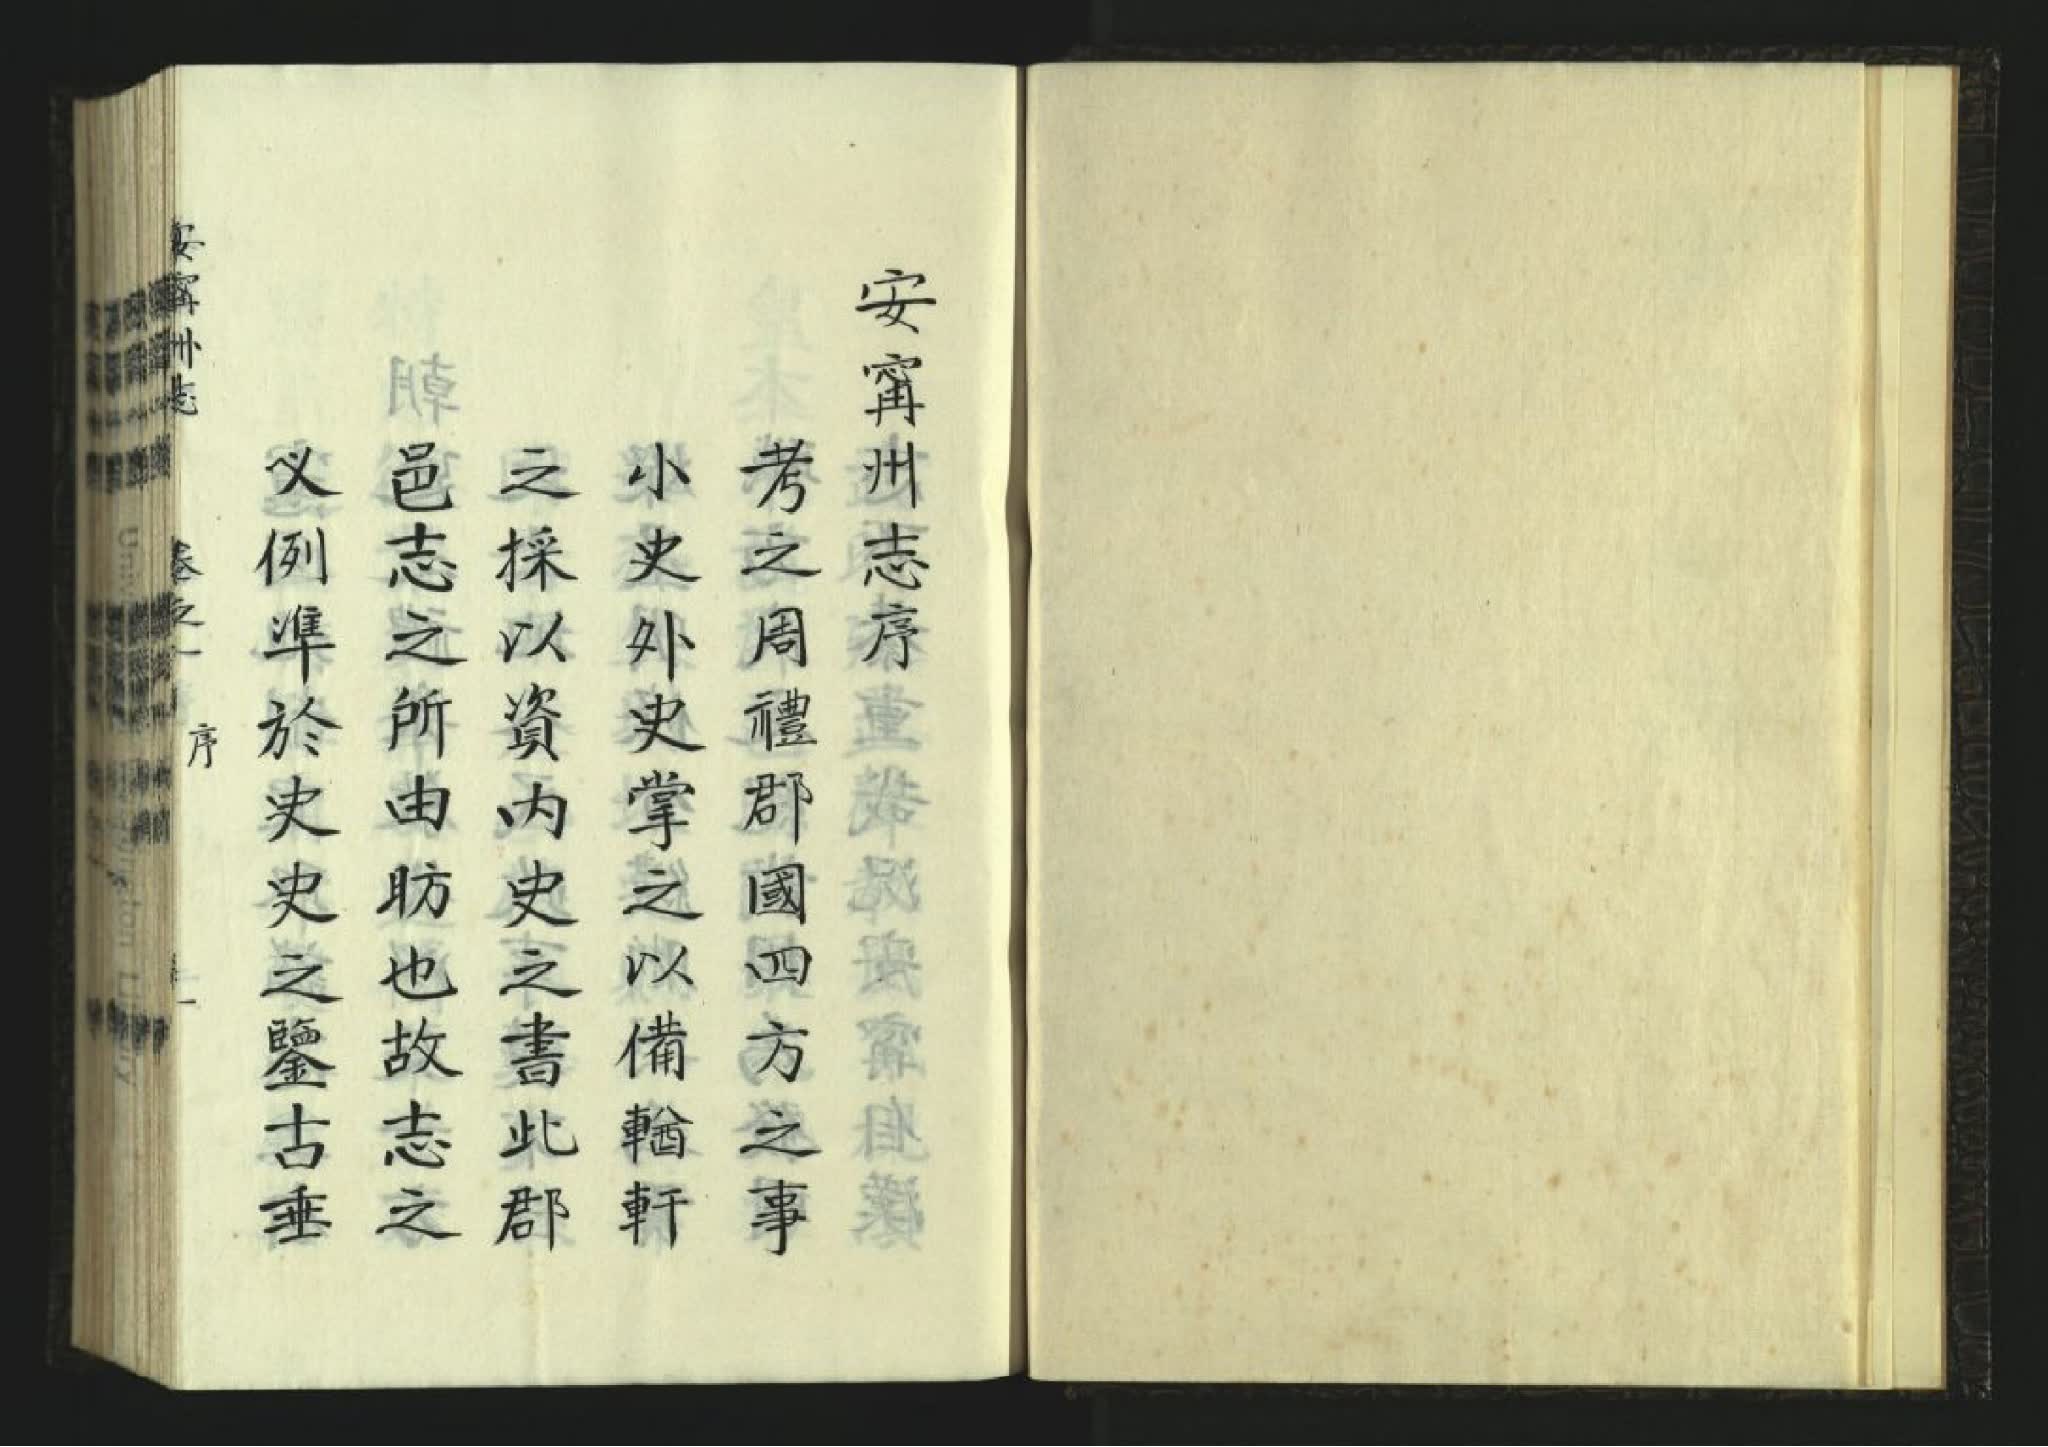 安甯州志序
考之周禮郡國四方之事
小史外史掌之以備輶軒
之採以資内史之書此郡
邑志之所由昉也故志之
义例準於史史之鑒古垂
安甯州志 卷之一 序